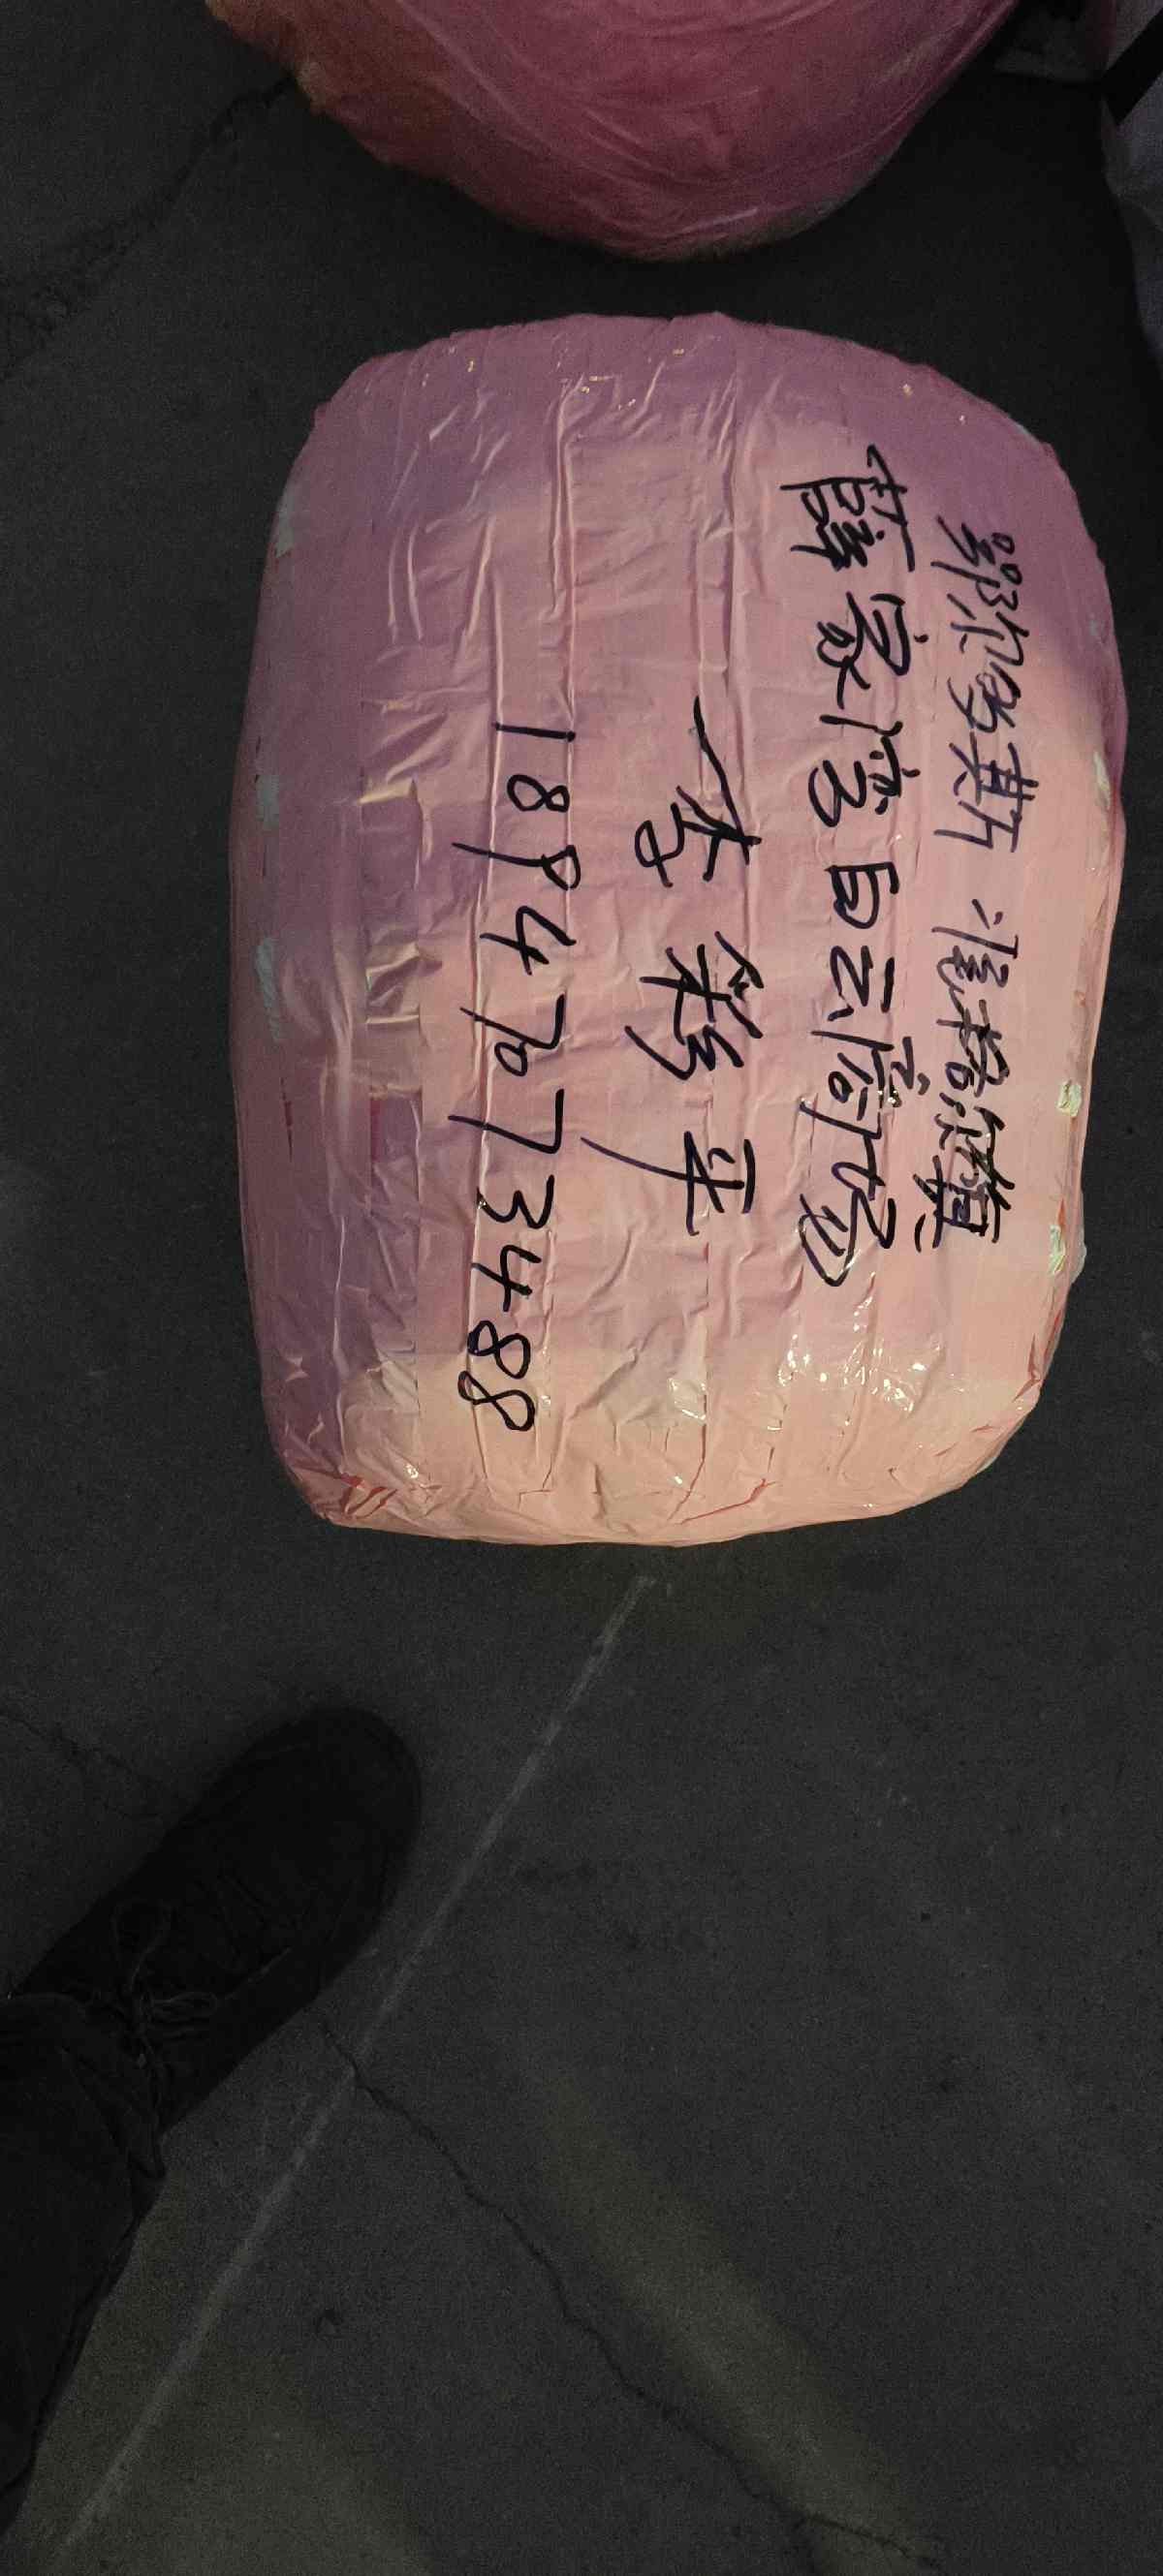 鄂尔多斯 准格尔旗
薛家湾白云商场
李彩平
18947073488